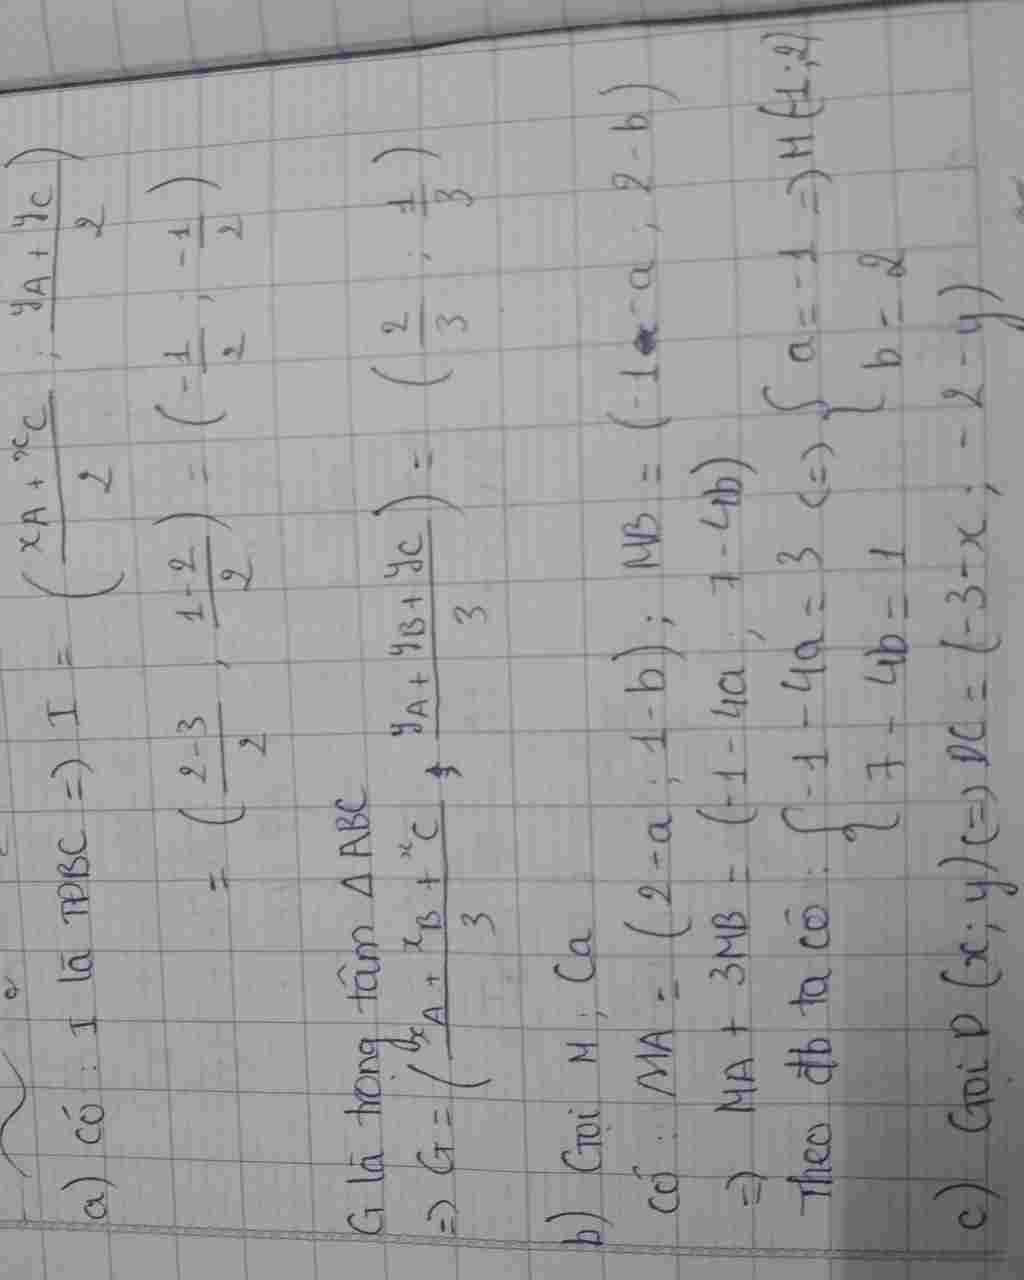 a) Có : I là TĐBC => I = ( xA + xC / 2 ; yA + yC / 2 )
= ( 2-3 / 2 ; 1-2 / 2 ) = ( -1/2 ; -1/2 )
G là trọng tâm Δ ABC
=> G = ( xA + xB + xC / 3 ; yA + yB + yC / 3 ) = ( 2/3 ; 1/3 )
b) Gọi M ; Ca
Có : MA = ( 2 - a ; 1 - b ) ; MB = ( -1 - a ; 2 - b )
=> MA + 3MB = ( -1 - 4a ; 7 - 4b )
Theo đb ta có : { -1 - 4a = 3 <=> { a = -1 => M (-1 ; 2)
7 - 4b = 1 b = 2
c) Gọi D ( x ; y ) <=> DC = ( -3 - x ; - 2 - y )